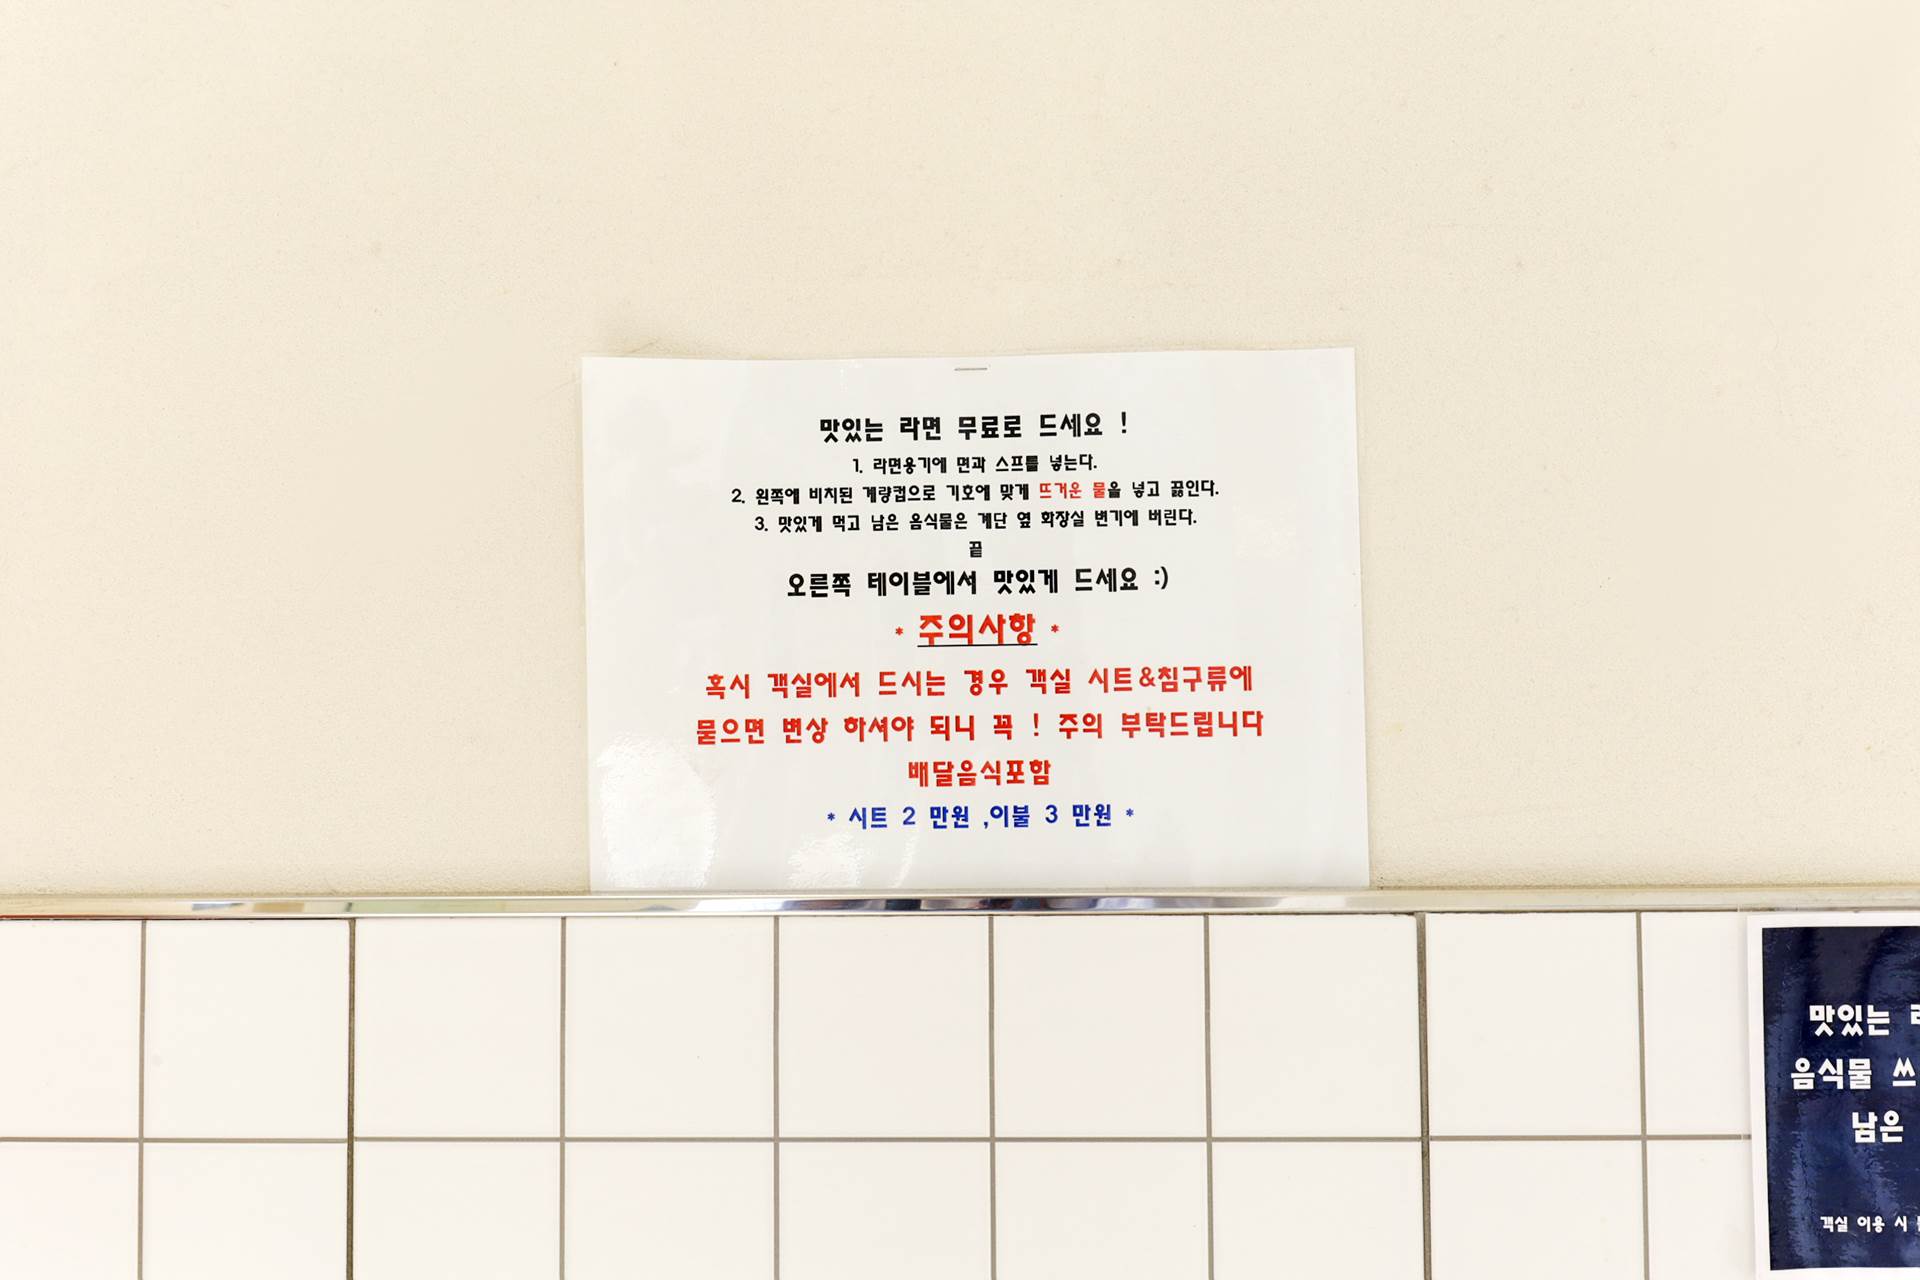 맛있는 라면 무료로 드세요 !
1. 라면용기에 면과 스프를 넣는다.
2. 왼쪽에 비치된 계량컵으로 기호에 맞게 뜨거운 물을 넣고 끓인다.
3. 맛있게 먹고 남은 음식물은 계단 옆 화장실 변기에 버린다.
끝
오른쪽 테이블에서 맛있게 드세요 :)
* 주의사항 *
혹시 객실에서 드시는 경우 객실 시트&침구류에
묻으면 변상 하셔야 되니 꼭 ! 주의 부탁드립니다
배달음식포함
* 시트 2 만원 ,이불 3 만원 *
맛있는
음식물 쓰
남은
객실 이용 시